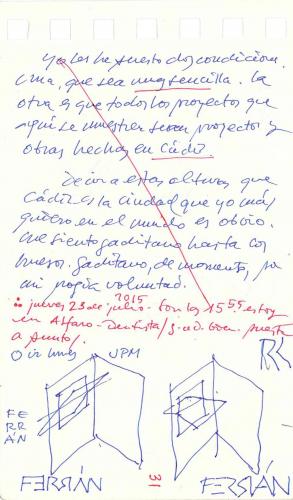 Yo les he puesto dos condicion.
Una, que sea muy sencilla. La
otra es que todos los proyectos que
aquí se muestren sean proyectos y
obras hechas en Cádiz.
Decir a estas alturas que
Cádiz es la ciudad que yo más
quiero en el mundo es obvio.
Me siento gaditano hasta los
huesos. Gaditano, de momento, por
mi propia voluntad.
jueves 23 de julio 2015 - Son las 15 55 estoy
en Alfaro - Dentista/ puesta
a punto/
RC
lunes UPM
FERRÁN
31
FERRÁN
FERRÁN